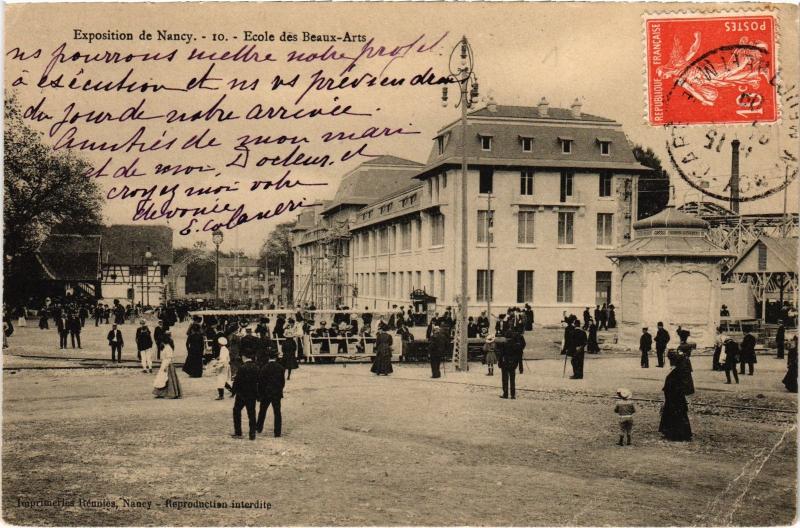 Exposition de Nancy. - 10. - Ecole des Beaux-Arts
ns pourrons mettre notre projet
à exécution et ns vs préviendrons
du jour de notre arrivée.
Amitiés de mon mari
et de moi, Docteur, et
croyez moi votre
dévouée
E. Colaneri
POSTES
REPUBLIQUE FRANÇAISE
Imprimeries Réunies, Nancy - Reproduction interdite